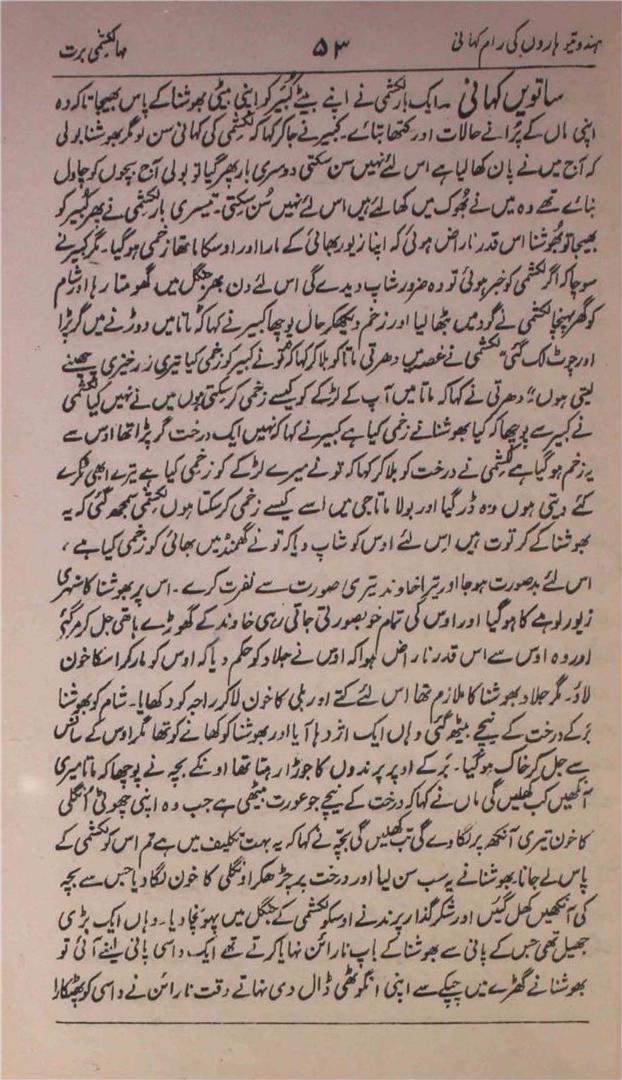 ہندو تیوہاروں کی رام کہانی ۵۳ مہالکشمی برت
ساتویں کہانی ۔ ایک بار لکشمی نے اپنے بیٹے کبیر کو اپنی بیٹی بھوشنا کے پاس بھیجا تاکہ وہ
اپنی ماں کے پرانے حالات اور کتھا بتائے۔ کبیر نے جا کر کہا کہ لکشمی کی کہانی سن لو مگر بھوشنا بولی
کہ آج میں نے پان کھا لیا ہے اس لئے نہیں سن سکتی دوسری بار پھر گیا تو بولی آج بچوں کو چاول
بنائے تھے وہ میں نے بھوک میں کھا لئے ہیں اس لئے نہیں سُن سکتی۔ تیسری بار لکشمی نے پھر کبیر کو
بھیجا تو بھوشنا اس قدر ناراض ہوئی کہ اپنا زیور بھائی کے مارا اور اوسکا ماتھا زخمی ہو گیا۔ مگر کبیر نے
سوچا کہ اگر لکشمی کو خبر ہوئی تو وہ ضرور شاپ دیدے گی اس لئے دن بھر جنگل میں گھومتا رہا اور شام
کو گھر پہنچا لکشمی نے گود میں بٹھا لیا اور زخم دیکھکر حال پوچھا کبیر نے کہا کہ ماتا میں دوڑنے میں گر پڑا
اور چوٹ لگ گئی" لکشمی نے غصہ میں دھرتی ماتا کو بلا کر کہا کہ تو نے کبیر کو زخمی کیا تیری زرخیزی چھینے
لیتی ہوں" دھرتی نے کہا کہ ماتا میں آپ کے لڑکے کو کیسے زخمی کر سکتی ہوں میں نے نہیں کیا لکشمی
نے کبیر سے پوچھا کہ کیا بھوشنا نے زخمی کیا ہے کبیر نے کہا کہ نہیں ایک درخت گر پڑا تھا اوس سے
یہ زخم ہو گیا ہے لکشمی نے درخت کو بلا کر کہا کہ تو نے میرے لڑکے کو زخمی کیا ہے تیرے ابھی ٹکڑے
کئے دیتی ہوں وہ ڈر گیا اور بولا ماتا جی میں اسے کیسے زخمی کر سکتا ہوں لکشمی سمجھ گئی کہ یہ
بھوشنا کے کرتوت ہیں اس لئے اوس کو شاپ دیا کہ تو نے گھمنڈ میں بھائی کو زخمی کیا ہے ،
اس لئے بدصورت ہو جا اور تیرا خاوند تیری صورت سے نفرت کرے۔ اس پر بھوشنا کا سنہری
زیور لوہے کا ہو گیا اور اوس کی تمام خوبصورتی جاتی رہی خاوند کے گھوڑے ہاتھی جل کر مر گئے
اور وہ اوس سے اس قدر ناراض ہوا کہ اوس نے جلاد کو حکم دیا کہ اوس کو مار کر اسکا خون
لاؤ۔ مگر جلاد بھوشنا کا ملازم تھا اس لئے کتے اور بلی کا خون لا کر راجہ کو دکھایا۔ شام کو بھوشنا
بَر کے درخت کے نیچے بیٹھ گئی وہاں ایک اژدہا آیا اور بھوشنا کو کھانے کو تھا مگر اوس کے سانس
سے جل کر خاک ہو گیا۔ بَر کے اوپر پرندوں کا جوڑا رہتا تھا اونکے بچہ نے پوچھا کہ ماتا میری
آنکھیں کب کھلیں گی ماں نے کہا کہ درخت کے نیچے جو عورت بیٹھی ہے جب وہ اپنی چھوٹی اُنگلی
کا خون تیری آنکھ پر لگا دے گی تب کھلیں گی بچّہ نے کہا کہ یہ بہت تکلیف میں ہے تم اس کو لکشمی کے
پاس لے جانا۔ بھوشنا نے یہ سب سن لیا اور درخت پر چڑھکر اونگلی کا خون لگا دیا جس سے بچہ
کی آنکھیں کھل گئیں اور شکر گذار پرند نے اوسکو لکشمی کے جنگل میں پہونچا دیا۔ وہاں ایک بڑی
جھیل تھی جس کے پانی سے بھوشنا کے باپ نارائن نہایا کرتے تھے ایک داسی پانی لینے آئی تو
بھوشنا نے گھڑے میں چپکے سے اپنی انگوٹھی ڈال دی نہاتے وقت نارائن نے داسی کو پھٹکارا